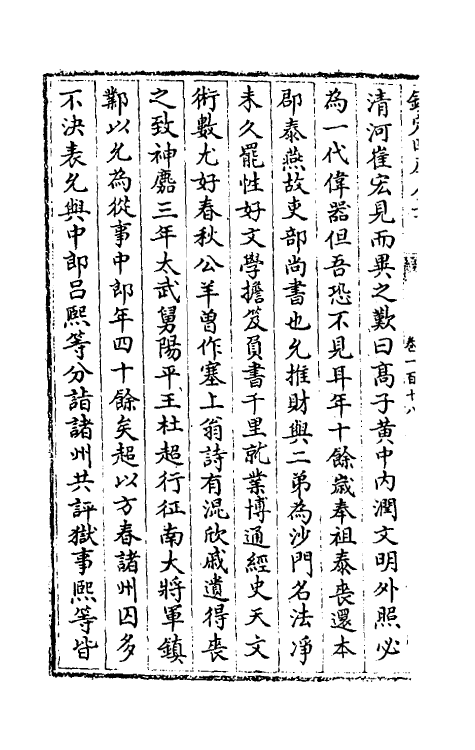 清河崔宏見而異之歎曰髙子黄中内潤文明外照必
為一代偉器但吾恐不見耳年十餘歳奉祖泰喪還本
郡泰燕故吏部尚書也允推財與二弟為沙門名法凈
未久罷性好文學擔笈負書千里就業博通經史天文
術數尤好春秋公羊曽作塞上翁詩有混欣戚遺得喪
之致神䴥三年太武舅陽平王杜超行征南大將軍鎮
鄴以允為從事中郎年四十餘矣超以方春諸州囚多
不決表允與中郎吕熙等分詣諸州共評獄事熙等皆
卷一百十八